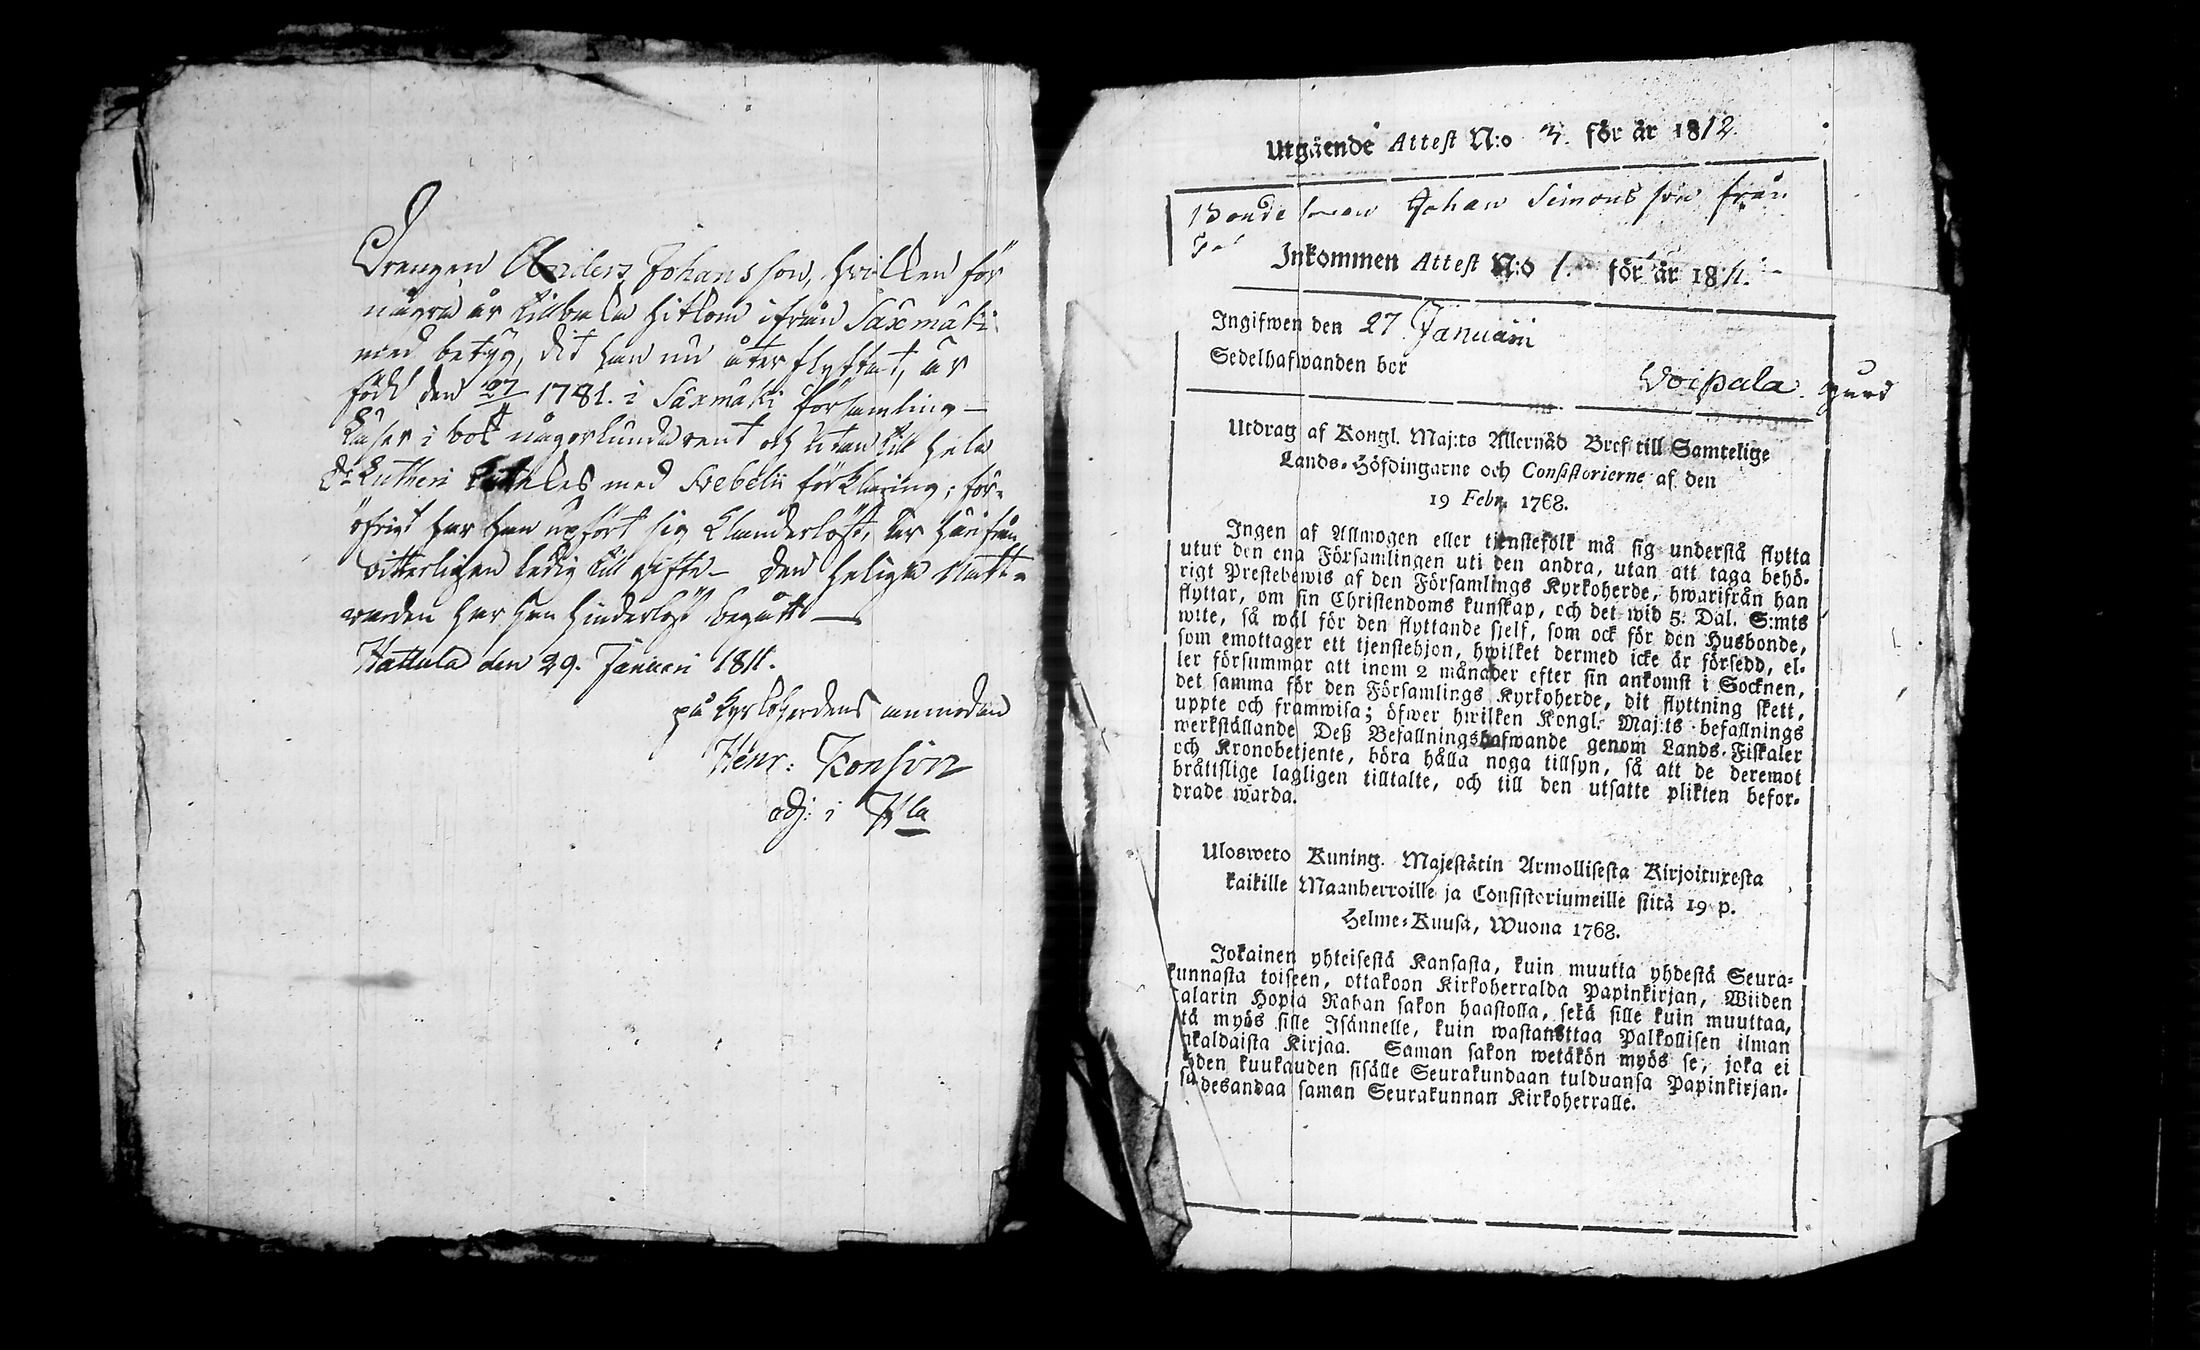 Drengen Anders Johansson, hvilken för
några år tillbaka hitkom ifrån Saxmäki
med betyg, dit han nu åter flyttat, är
född den 27/4 1781. i Saxmäki församling –
Läser i bok någorlunda rent och utan till hela
D: Lutheri Cateches med Svebelii förklaring; för-
öfrigt har han upfört sig klanderlöst, är härifrån
vitterligen ledig till gifte – den heliga Natt-
varden har han hinderlöst begått –
Hattula den 29. Januari 1811.
på Kyrkoherdens anmodan
Henr:
adj: i Hla
Utgående Attest N:o 3. för år 1812
Bonde sonen Johan Simons son från
Inkommen Attest N:o 1. för år 1811.
Ingifwen den 27 Januarii
Sedelhafwanden bor
Voipala gård
Utdrag af Kongl. Maj:ts Allernåd Bref till Samtelige
Lands-Höfdingarne och Consistorierne af den
19 Febr. 1768.
Ingen af Allmogen eller tjenstefolk må sig understå flytta
utur den ena Församlingen uti den andra, utan att taga behö-
rigt Prestebewis af den Församlings Kyrkoherde, hwarifrån han
flyttar, om sin Christendoms kunskap, och det wid 5. Dal. S:mts
wite, så wäl för den flyttande sjelf, som ock för den Husbonde,
som emottager ett tjenstehjon, hwilket dermed icke är försedd, el-
ler försummar att inom 2 månader efter sin ankomst i Socknen,
det samma för den Församlings Kyrkoherde, dit flyttning skett,
uppte och framwisa; öfwer hwilken Kongl. Maj:ts befallnings
werkställande Deß Befallningshafwande genom Lands-Fiskaler
och Kronobetjente, böra hålla noga tillsyn, så att de deremot
bråttslige lagligen tilltalte, och till den utsatte plikten befor-
drade warda.
Ulosweto Kuning. Majestätin Armollisesta Kirjoituxesta
kaikille Maanherroille ja Consistoriumeille siitä 19 p.
Helme-Kuusa, Wuona 1768.
Jokainen yhteisestä Kansasta, kuin muutta yhdestä Seura-
kunnasta toiseen, ottakoon Kirkoherralda Papinkirjan, Wiiden
alarin Hopia Rahan sakon haastolla, sekä sille kuin muuttaa,
tä myös sille Isännelle, kuin wastanottaa Palkollisen ilman
nkaldaista Kirjaa. Saman sakon wetäkön myös se, joka ei
hden kuukauden sisälle Seurakundaan tulduansa Papinkirjan-
sa desandaa saman Seurakunnan Kirkoherralle.